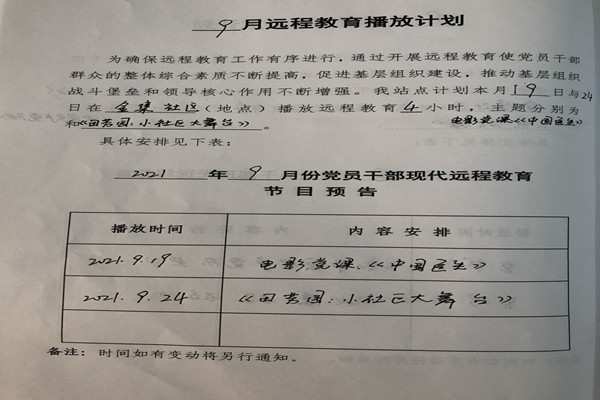 9月远程教育播放计划
为确保远程教育工作有序进行,通过开展远程教育使党员干部
群众的整体综合素质不断提高,促进基层组织建设,推动基层组织
战斗堡垒和领导核心作用不断增强。我站点计划本月19日与24
日在金集社区(地点)播放远程教育4小时,主题分别为电影党课《中国医生》
和《田芳园:小社区大舞台》。
具体安排见下表:
2021年9月份党员干部现代远程教育
节目预告
播放时间 内容安排
2021.9.19 电影党课:《中国医生》
2021.9.24 《田芳园:小社区大舞台》
备注:时间如有变动将另行通知。